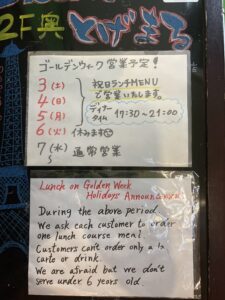 2F奥 とげまる
ゴールデンウィーク 営業予定!
3(土)
4(日)
5(月)
6(火) 休みます
7(水) 通常営業
祝日ランチMENU
で営業いたします。
ディナー
タイム 17:30~21:00
Lunch on Golden Week
Holidays Announcement
During the above period.
We ask each customer to order
one lunch course meal
Customers can't order only a la
carte or drink.
We are afraid but we don't
serve under 6 years old